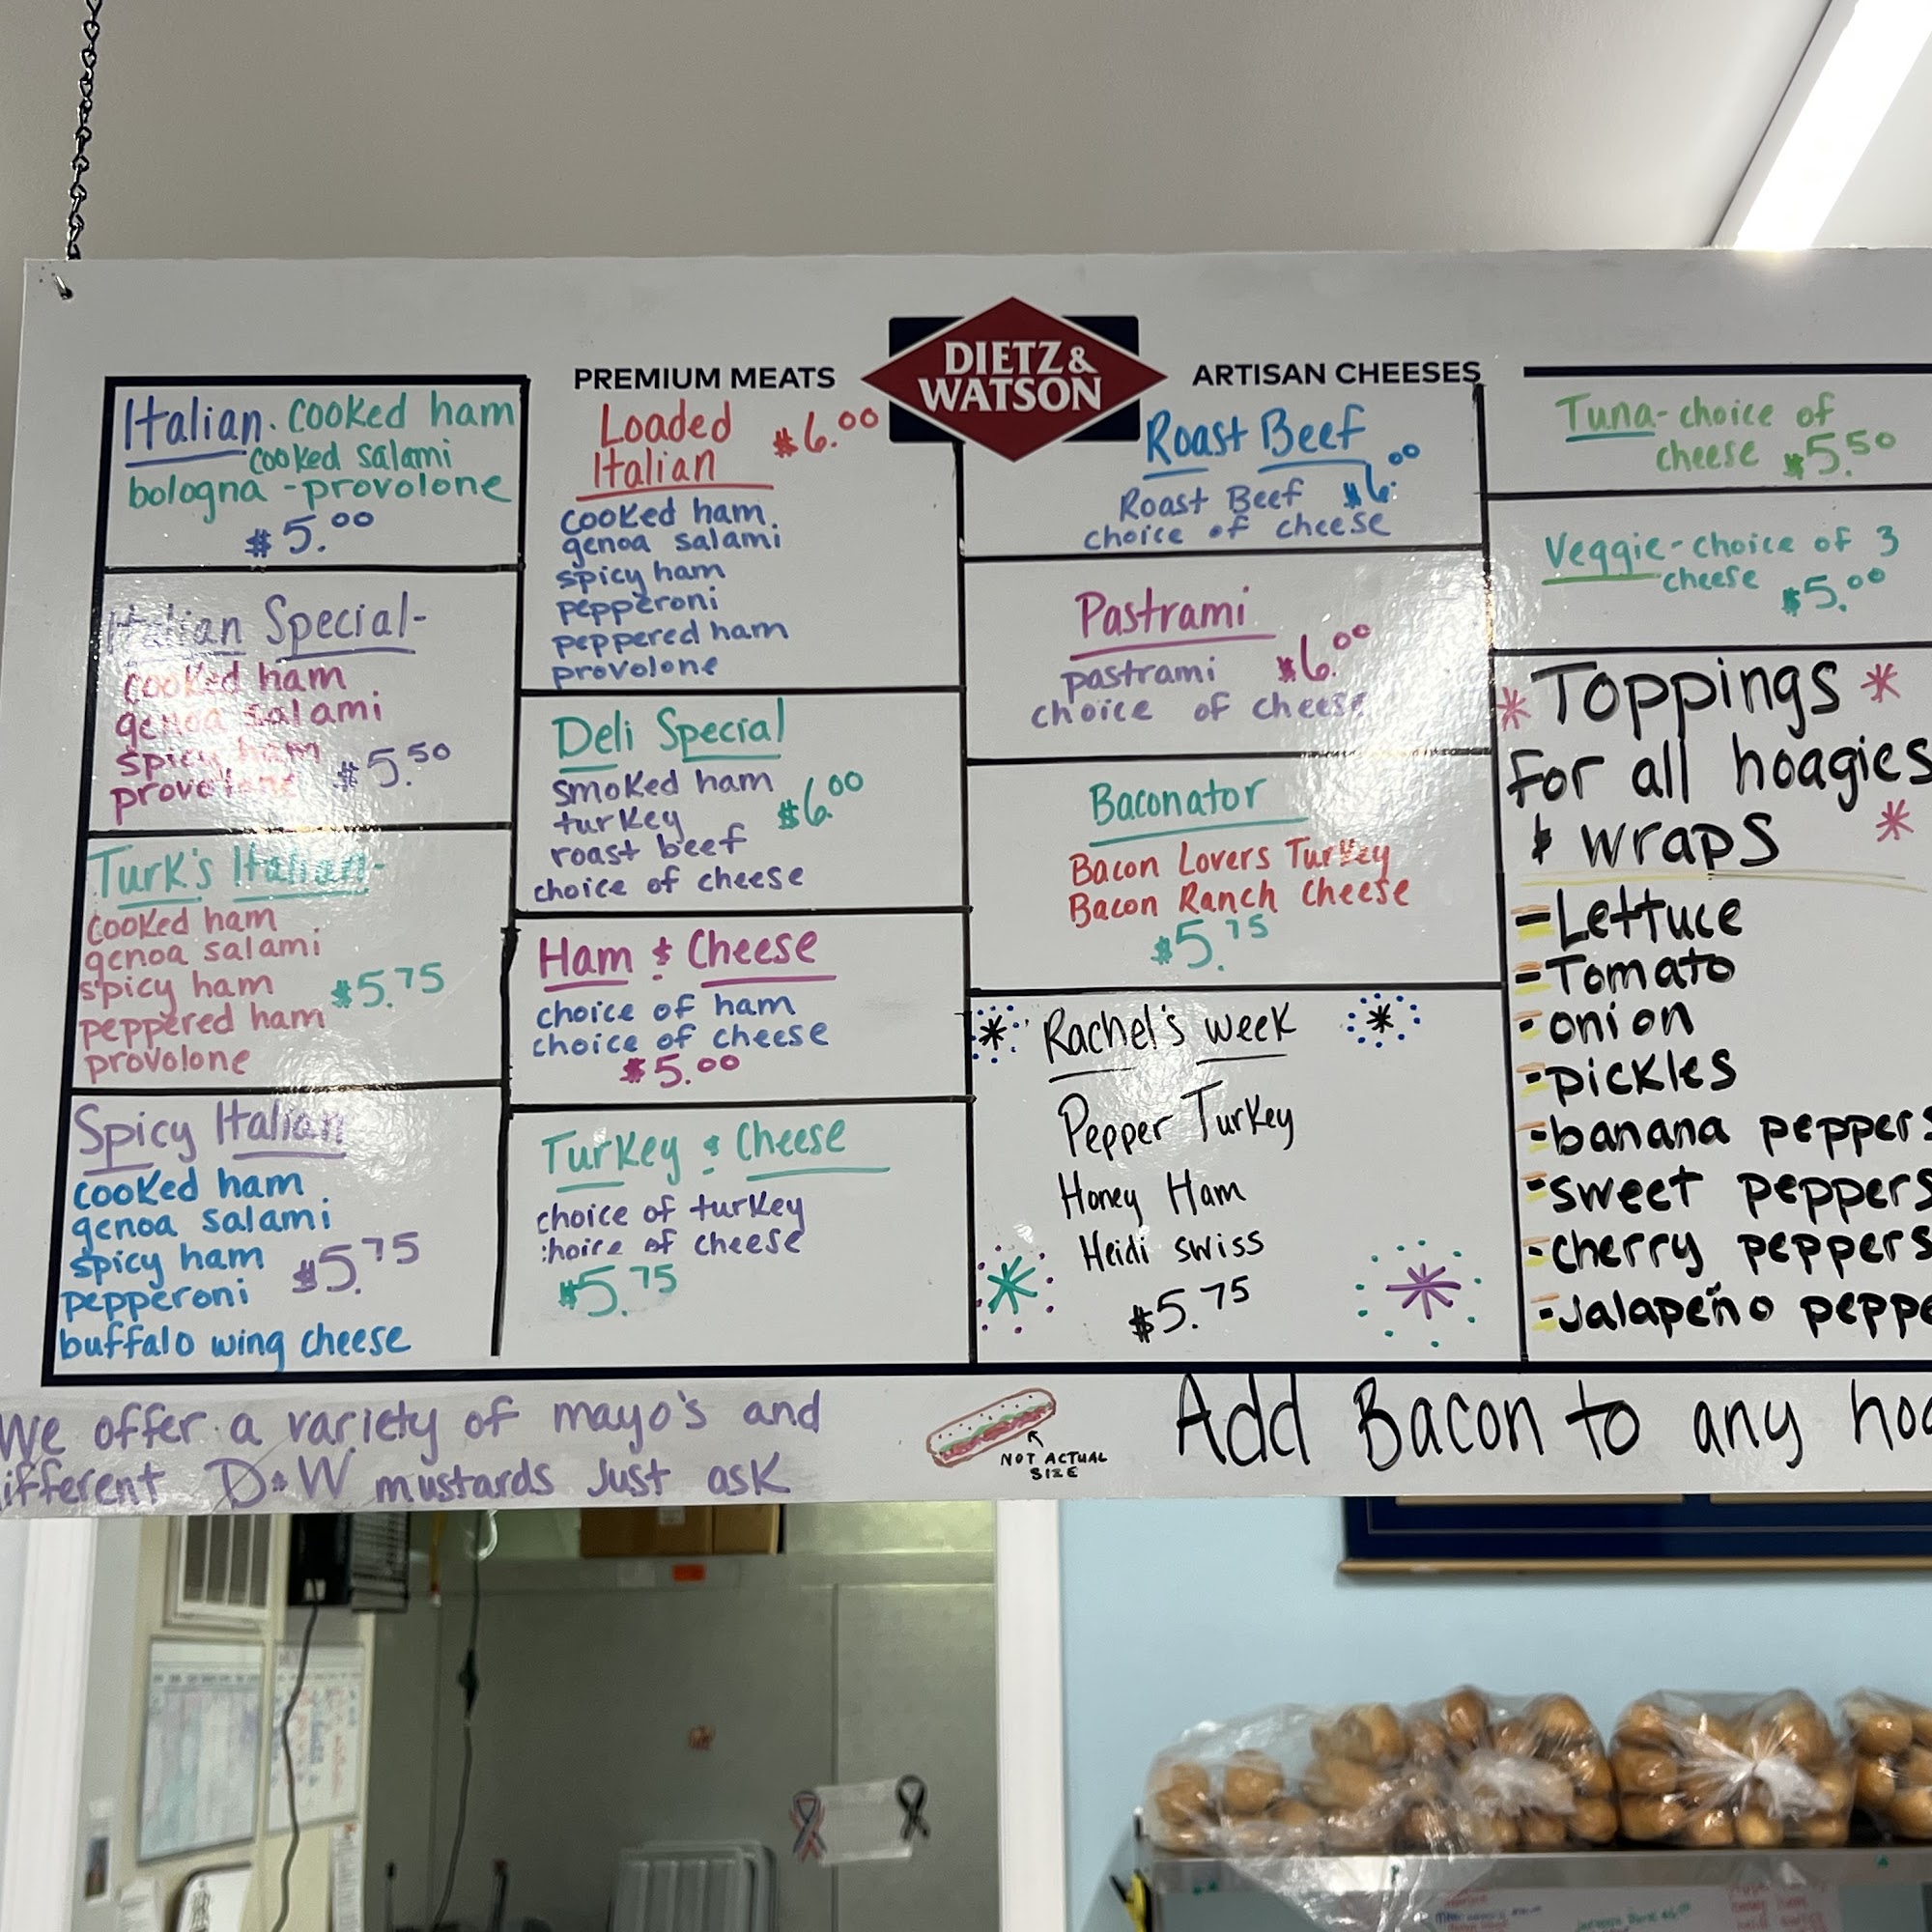 PREMIUM MEATS
DIETZ &
WATSON
ARTISAN CHEESES
Italian. cooked ham
cooked salami
bologna - provolone
$5.00
Italian Special-
cooked ham
genoa salami
spicy ham
provolone $5.50
Turk's Italian-
cooked ham
genoa salami
spicy ham $5.75
peppered ham
provolone
Spicy Italian
cooked ham
genoa salami
spicy ham $5.75
pepperoni
buffalo wing cheese
Loaded $6.00
Italian
cooked ham
genoa salami
spicy ham
pepperoni
peppered ham
provolone
Deli Special
smoked ham
turkey $6.00
roast beef
choice of cheese
Ham & Cheese
choice of ham
choice of cheese
$5.00
Turkey & Cheese
choice of turkey
choice of cheese
$5.75
Roast Beef
Roast Beef $6.00
choice of cheese
Pastrami
pastrami $6.00
choice of cheese
Baconator
Bacon Lovers Turkey
Bacon Ranch Cheese
$5.75
Rachel's week
Pepper Turkey
Honey Ham
Heidi swiss
$5.75
Tuna-choice of
cheese $5.50
Veggie-choice of 3
cheese $5.00
* Toppings *
for all hoagies
& wraps *
-Lettuce
-Tomato
-onion
-pickles
-banana peppers
-sweet peppers
-cherry peppers
-Jalapeño peppe
We offer a variety of mayo's and
ifferent D&W mustards Just ask
NOT ACTUAL
SIZE
Add Bacon to any hoa